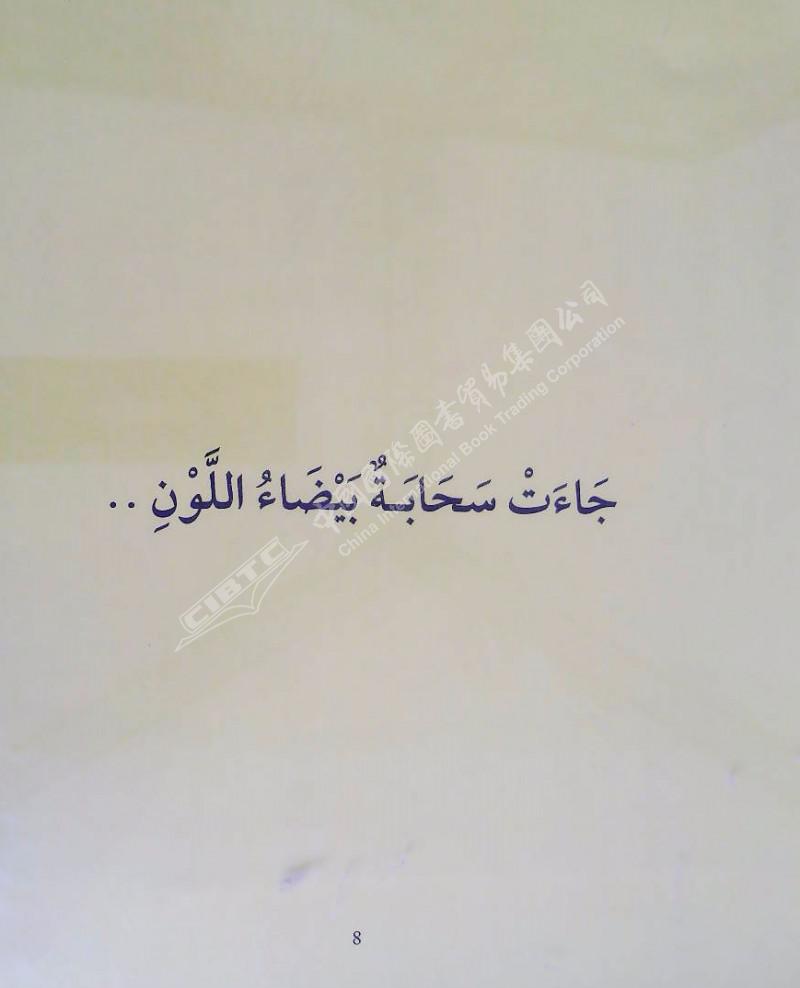 中國國際圖書貿易集團公司
China International Book Trading Corporation
جَاءَتْ سَحَابَـةٌ بَيْضَاءُ اللَّوْنِ ..
CIBTC
8